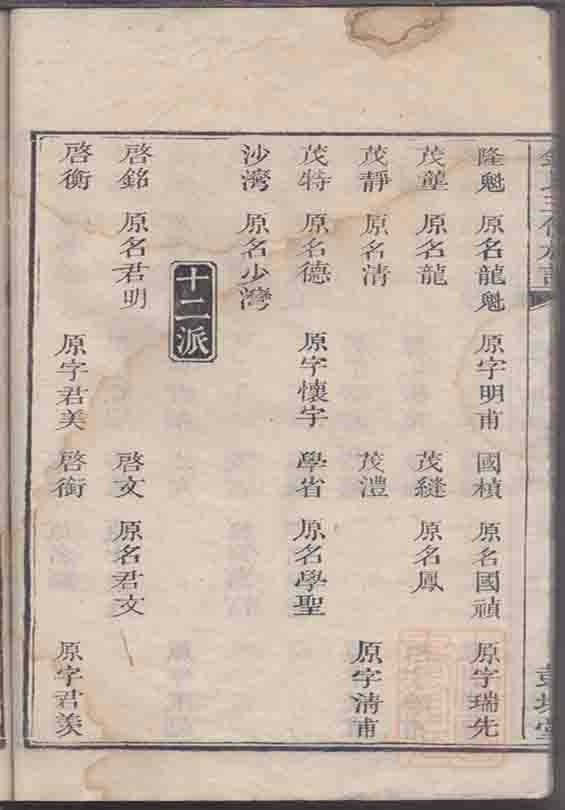 隆魁 原名龍魁 原字明甫 國楨 原名國禎 原字瑞先
茂龔 原名龍 茂縫 原名鳳
茂靜 原名清 茂澧 原字清甫
茂特 原名德 原字懷宇 學省 原名學聖
沙灣 原名少灣
十二派
啓銘 原名君明 啓文 原名君文
啓衡 原字君美 啓銜 原字君羡